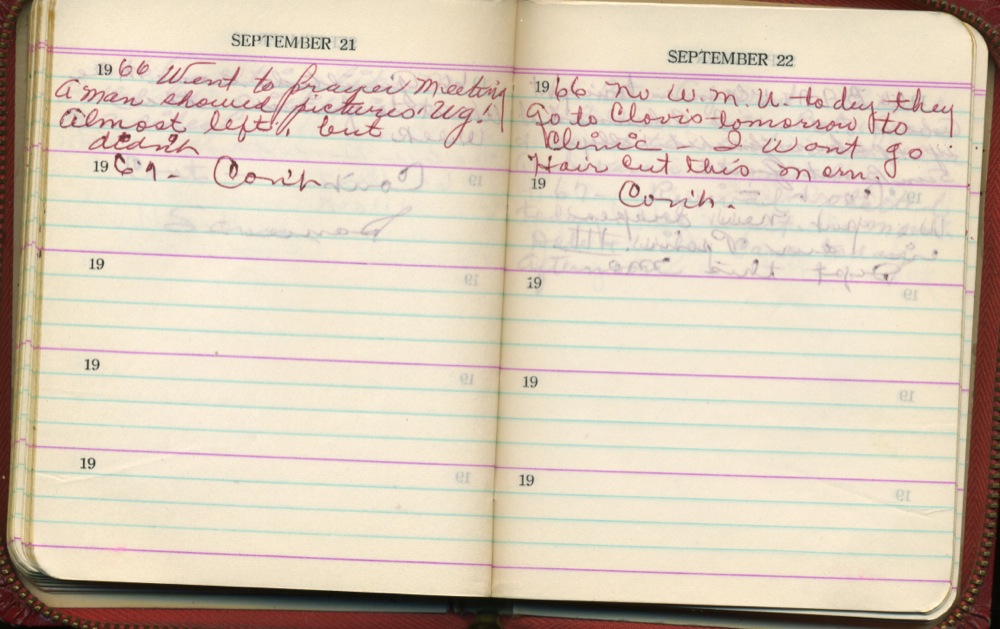 SEPTEMBER 21
1966 Went to prayer meeting
A man showed pictures. Ug!
Almost left, but
didn't
19
19
19
19
SEPTEMBER 22
1966 No W.M.U. today they
go to Clovis tomorrow to
Clinic - I wont go
Hair cut this morn.
19
19
19
19